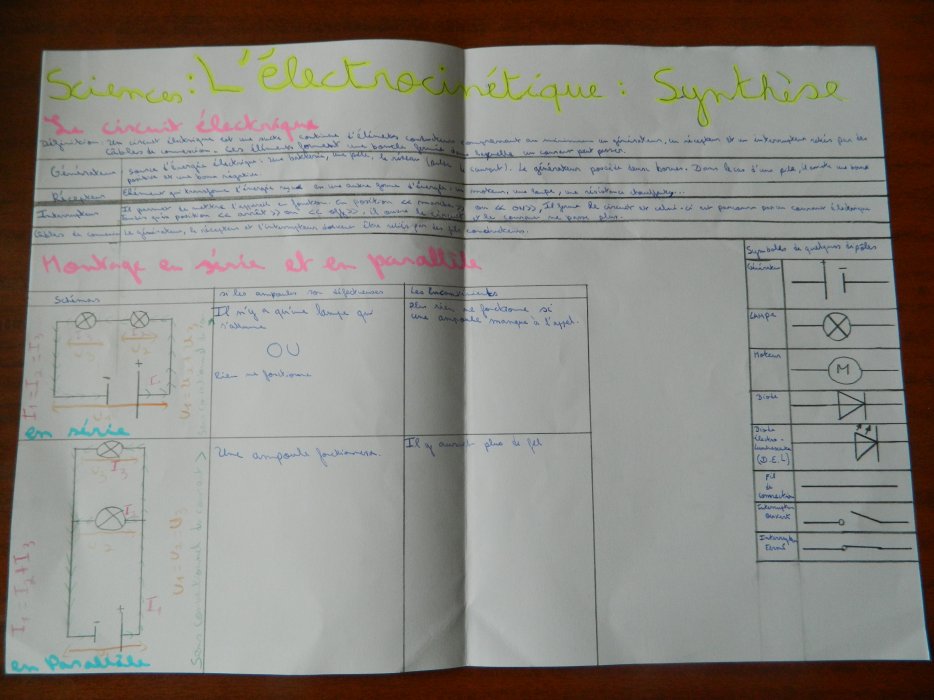 Sciences : L'électrocinétique : Synthèse
Le circuit électrique
Définition : Un circuit électrique est une suite continue d'éléments conducteurs comprenant au minimum un générateur, un récepteur et un interrupteur reliés par des
câbles de connexion. Ces éléments forment une boucle fermée dans laquelle un courant peut passer.
Générateur
source d'énergie électrique. Une batterie, une pile, le réseau le courant). Le générateur possède deux bornes. Dans le cas d'une pile, il existe une borne
positive et une borne négative.
Récepteur
Elément qui transforme l'énergie en une autre forme d'énergie. un moteur, une lampe, une résistance chauffante...
Interrupteur
Il permet de mettre l'appareil en fonction. En position << marche >> ou << on >>, Il ferme le circuit et celui-ci est parcouru par un courant électrique
position << arrêt >> ou << off >>, il ouvre le circuit et le courant ne passe plus.
Câbles de connexion
Le générateur, le récepteur et l'interrupteur doivent être reliés par des fils conducteurs.
Montage en série et en parallèle
Schémas
si les ampoules son défectueuses
Les Inconvénients
I1 = I2 = I3
U1 = U2 + U3
en série
Il n'y a qu'une lampe qui
s'allume
OU
Rien ne fonctionne
Plus rien ne fonctionne si
une ampoule manque à l'appel.
I1 = I2 + I3
I3
I1
U1 = U2 = U3
Sens conventionnel du courant >
en Parallèle
Une ampoule fonctionnera.
Il y aurait plus de fil
Symboles de quelques dipôles
Générateur
+ -
Lampe
Moteur
M
Diode
Diode
électro-
luminescente
(D.E.L)
Fil
de
connection
Interrupteur
Ouvert
Interrupteur
Fermé